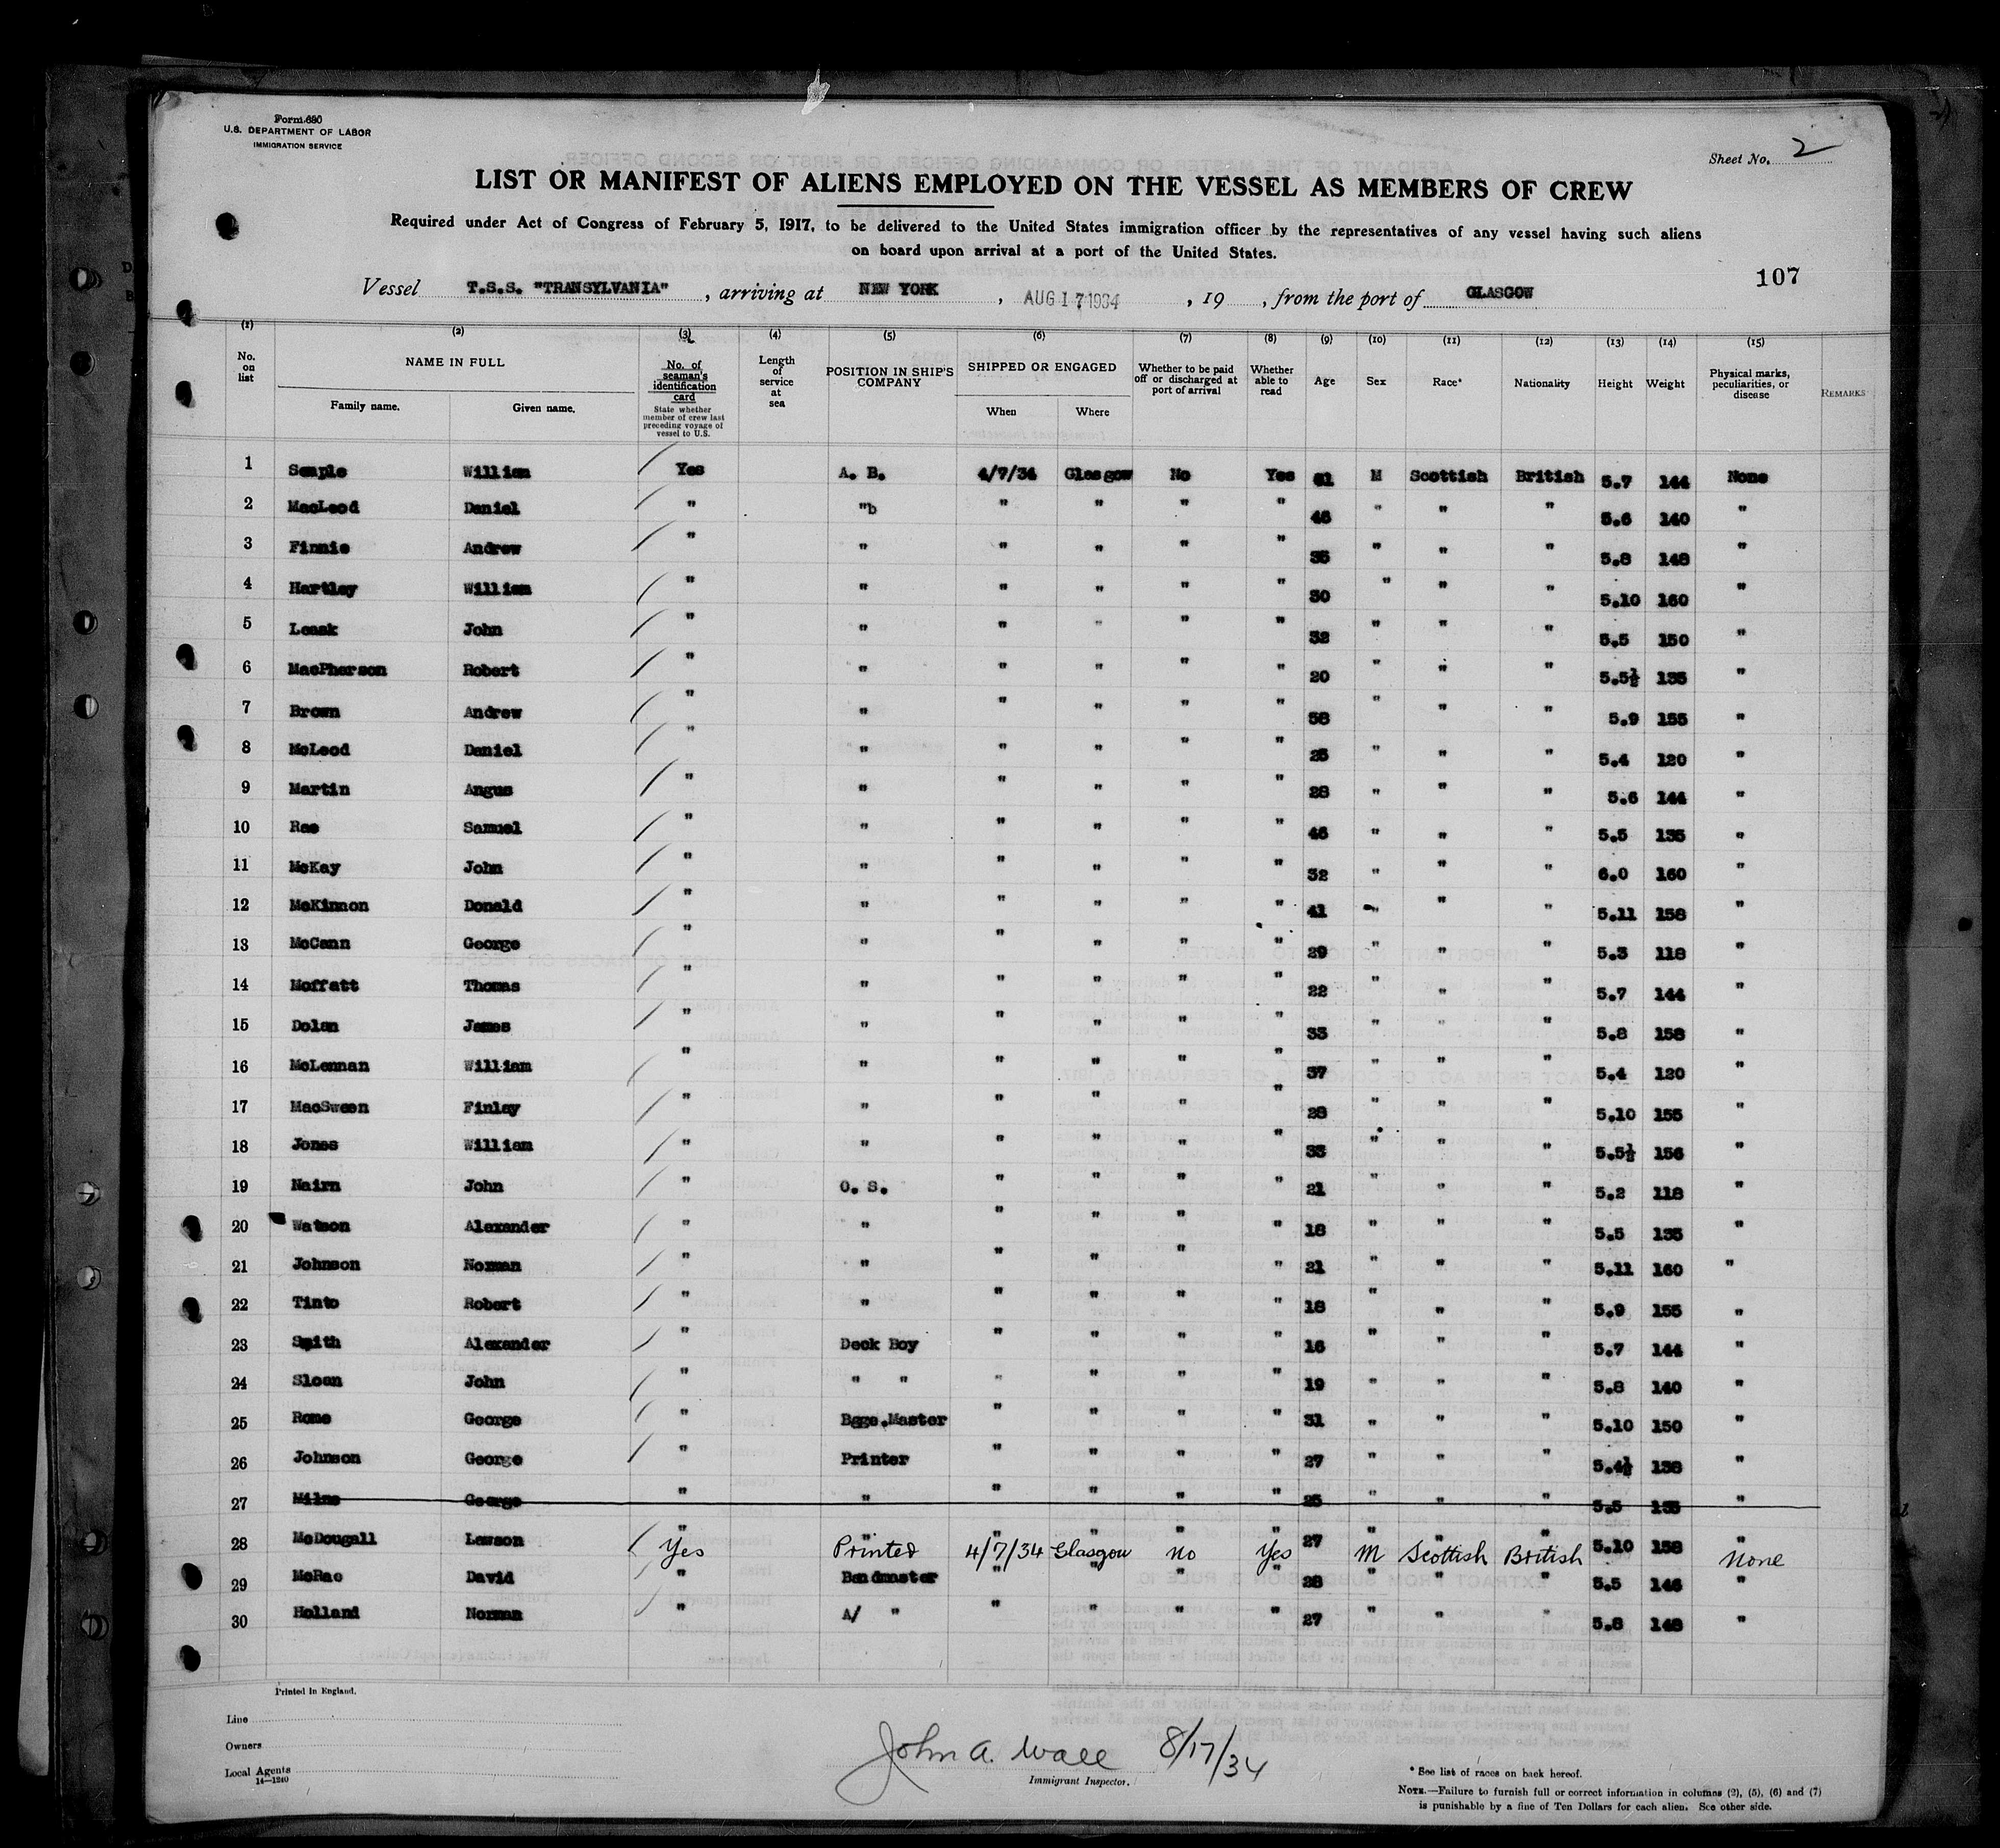 Form 680
U.S. DEPARTMENT OF LABOR
IMMIGRATION SERVICE
Sheet No. 2
LIST OR MANIFEST OF ALIENS EMPLOYED ON THE VESSEL AS MEMBERS OF CREW
Required under Act of Congress of February 5, 1917, to be delivered to the United States immigration officer by the representatives of any vessel having such aliens
on board upon arrival at a port of the United States.
107
Vessel T.S.S. "TRANSYLVANIA", arriving at NEW YORK, AUG 17 1934, 19 , from the port of GLASGOW
(1) (2) (3) (4) (5) (6) (7) (8) (9) (10) (11) (12) (13) (14) (15)
No. on list NAME IN FULL Family name. Given name. No. of seaman's identification card State whether member of crew last preceding voyage of vessel to U.S. Length of service at sea POSITION IN SHIP'S COMPANY SHIPPED OR ENGAGED When Where Whether to be paid off or discharged at port of arrival Whether able to read Age Sex Race* Nationality Height Weight Physical marks, peculiarities, or disease REMARKS
1 Semple William Yes A. B. 4/7/34 Glasgow No Yes M Scottish British 5.7 144 None
2 MacLeod Daniel " "b " " " " 46 " " " 5.6 140 "
3 Finnie Andrew " " " " " " 35 " " " 5.8 148 "
4 Hartley William " " " " " " 30 " " " 5.10 160 "
5 Leask John " " " " " " 32 " " " 5.5 150 "
6 MacPherson Robert " " " " " " 20 " " " 5.5½ 135 "
7 Brown Andrew " " " " " " 58 " " " 5.9 155 "
8 McLeod Daniel " " " " " " 25 " " " 5.4 120 "
9 Martin Angus " " " " " " 28 " " " 5.6 144 "
10 Rae Samuel " " " " " " 46 " " " 5.5 135 "
11 McKay John " " " " " " 32 " " " 6.0 160 "
12 McKinnon Donald " " " " " " 41 " " " 5.11 158 "
13 McCann George " " " " " " 29 " " " 5.3 118 "
14 Moffatt Thomas " " " " " " 22 " " " 5.7 144 "
15 Dolan James " " " " " " 33 " " " 5.8 158 "
16 McLennan William " " " " " " 37 " " " 5.4 120 "
17 MacSween Finlay " " " " " " 28 " " " 5.10 155 "
18 Jones William " " " " " " 33 " " " 5.5½ 156 "
19 Nairn John " O. S. " " " " 21 " " " 5.2 118 "
20 Watson Alexander " " " " " " 18 " " " 5.5 135 "
21 Johnson Norman " " " " " " 21 " " " 5.11 160 "
22 Tinto Robert " " " " " " 18 " " " 5.9 155 "
23 Smith Alexander " Deck Boy " " " " 16 " " " 5.7 144 "
24 Sloan John " " " " " " " 19 " " " 5.8 140 "
25 Rome George " Bgge.Master " " " " 31 " " " 5.10 150 "
26 Johnson George " Printer " " " " 27 " " " 5.4½ 138 "
27 Milne George " " " " " " 25 " " " 5.5 135 "
28 McDougall Lawson " Yes " Printed " 4/7/34 " Glasgow " No " Yes 27 " M " Scottish " British 5.10 158 " None
29 McRae David " Bandmaster " " " " 28 " " " 5.5 146 "
30 Holland Norman " A/ " " " " " 27 " " " 5.8 148 "
Printed in England.
Line
Owners
Local Agents
14—1240
John A. Wall 8/17/34
Immigrant Inspector.
* See list of races on back hereof.
NOTE.—Failure to furnish full or correct information in columns (2), (5), (6) and (7)
is punishable by a fine of Ten Dollars for each alien. See other side.